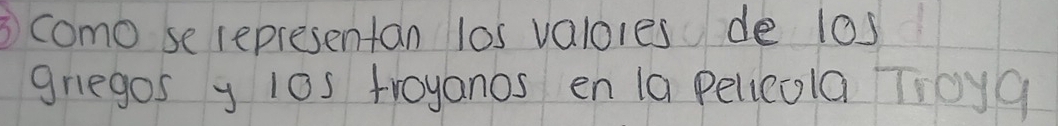 3 como se representan los valores de los
griegos y los troyanos en la pelicola Troya